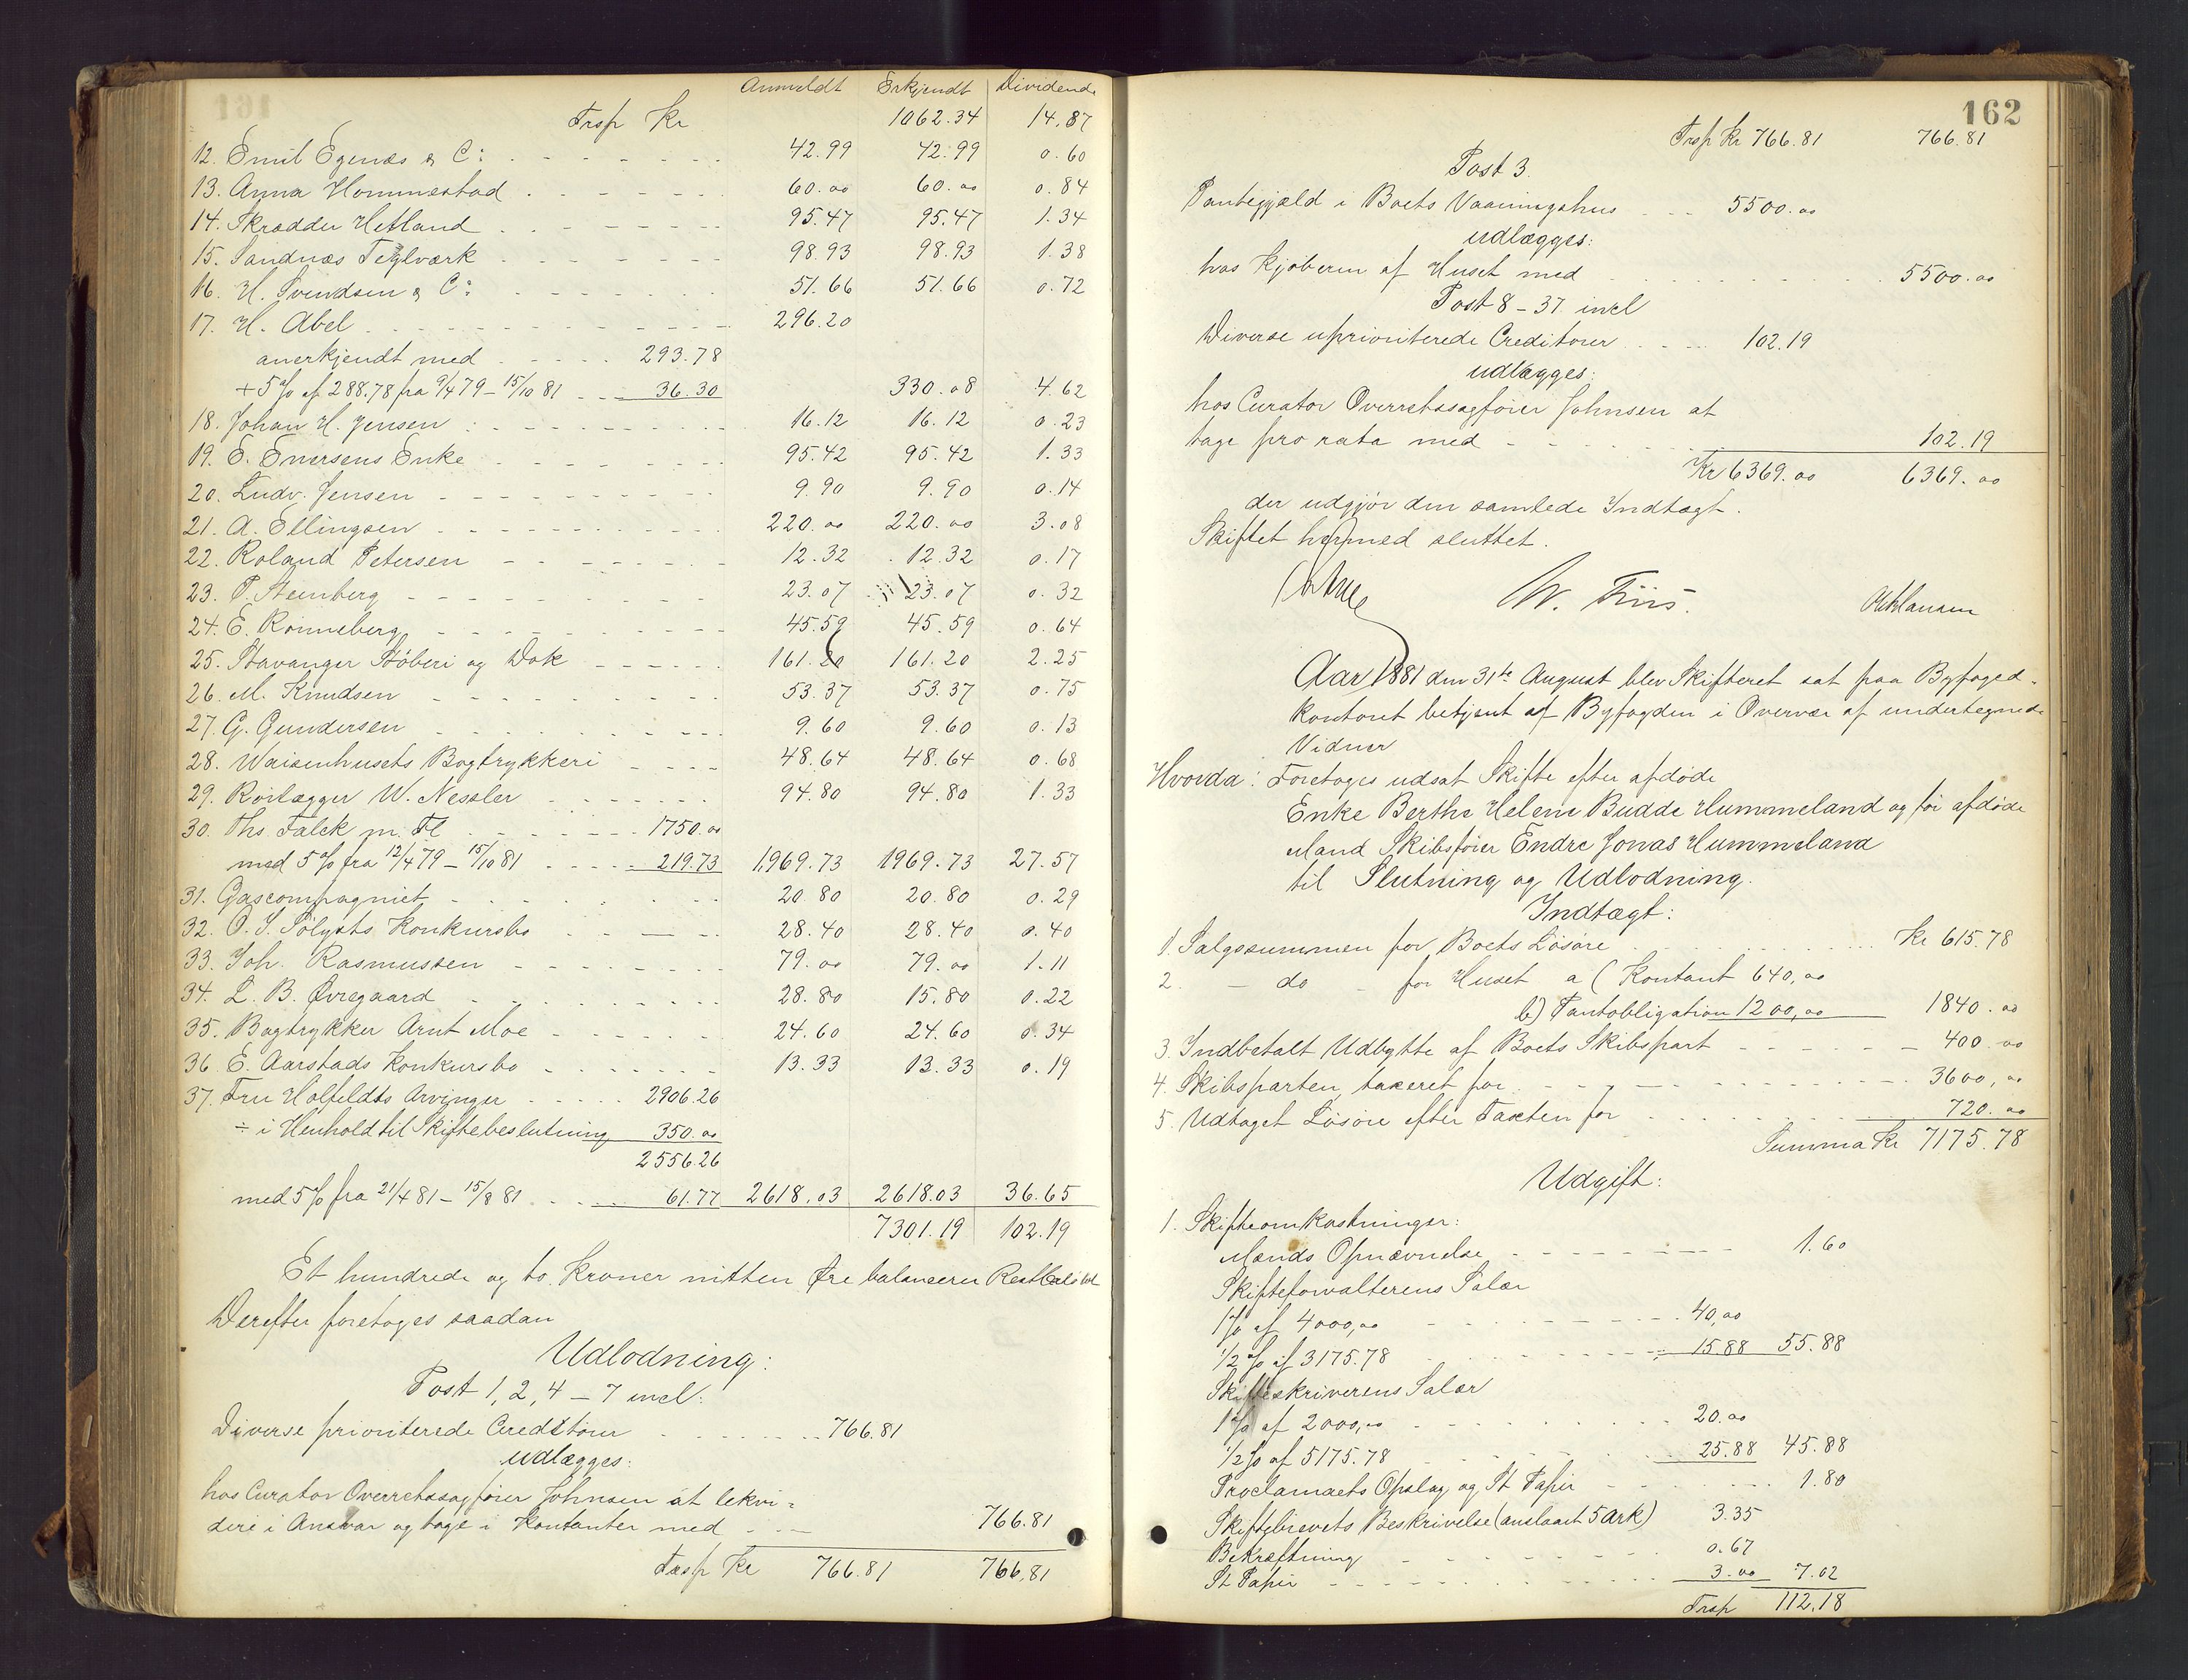 Anmeldt Erkjendt Dividende
Trsp Kr 1062.34 14.87
12. Emil Egenæs & C: 42.99 42.99 0.60
13. Anna Hommestad 60.00 60.00 0.84
14. Skrædder Hetland 95.47 95.47 1.34
15. Sandnæs Teglværk 98.93 98.93 1.38
16. H. Svendsen & C: 51.66 51.66 0.72
17. H. Abel 296.20
anerkjendt med 293.78
+ 5 % af 288.78 fra 9/4 79 – 15/10 81 36.30 330.08 4.62
18. Johan H. Jensen 16.12 16.12 0.23
19. E. Enersens Enke 95.42 95.42 1.33
20. Ludv. Jensen 9.90 9.90 0.14
21. A. Ellingsen 220.00 220.00 3.08
22. Roland Petersen 12.32 12.32 0.17
23. P. Steinberg 23.07 23.07 0.32
24. E. Rönneberg 45.59 45.59 0.64
25. Stavanger Stöberi og Dok 161.20 161.20 2.25
26. M. Knudsen 53.37 53.37 0.75
27. G. Gundersen 9.60 9.60 0.13
28. Waisenhusets Bogtrykkeri 48.64 48.64 0.68
29. Rörlægger W. Nessler 94.80 94.80 1.33
30. Ths. Falck m. Fl 1750.00
med 5 % fra 12/4 79 – 15/10 81 219.73 1969.73 1969.73 27.57
31. Gascompagniet 20.80 20.80 0.29
32. O. S. Sölysts Konkursbo 28.40 28.40 0.40
33. Joh. Rasmussen 79.00 79.00 1.11
34. L. B. Øvregaard 28.80 15.80 0.22
35. Bogtrykker Arnt Moe 24.60 24.60 0.34
36. E. Aarstads Konkursbo 13.33 13.33 0.19
37. Fru Holfeldts Arvinger 2906.26
÷ i Henhold til Skiftebeslutning 350.00
2556.26
med 5 % fra 21/4 81 – 15/8 81 61.77 2618.03 2618.03 36.65
7301.19 102.19
Et hundrede og to Kroner nitten Øre balancerer Restbelöbet
Derefter foretoges saadan
Udlodning:
Post 1, 2, 4 – 7 incl:
Diverse prioriterede Creditorer 766.81
udlægges:
hos Curator Overretssagförer Johnsen at lekvi=
dere i Ansvar og tage i Kontanter med 766.81
Trsp Kr 766.81 766.81
162
Trsp Kr 766.81 766.81
Post 3.
Pantegjæld i Boets Vaaningshus 5500.00
udlægges:
hos Kjöberen af Huset med 5500.00
Post 8 – 37 incl
Diverse uprioriterede Creditorer 102.19
udlægges:
hos Curator Overretssagförer Johnsen at
tage pro rata med 102.19
Kr 6369.00 6369.00
der udgjör den samlede Indtægt.
Skiftet hermed sluttet.
W. Friis.
Aar 1881 den 31te August blev Skifteret sat paa Byfoged-
kontoret betjent af Byfogden i Overvær af undertegnede
Vidner
Hvorda: Foretoges udsat Skifte efter afdöde
Enke Berthe Helene Budde Hummeland og för afdöde
Mand Skibsförer Endre Jonas Hummeland
til Slutning og Udlodning.
Indtægt:
1. Salgssummen for Boets Lösöre Kr 615.78
2. – do – for Huset a ( Kontant 640,00
b) Pantobligation 1200,00 1840.00
3. Indbetalt Udbytte af Boets Skibspart 400.00
4. Skibsparten taxeret for 3600,00
5. Udtaget Lösöre efter Taxten for 720.00
Summa Kr 7175.78
Udgift:
1. Skifteomkostninger:
Mænds Opnævnelse 1.60
Skifteforvalterens Salær
1 % af 4000,00 40,00
1/2 % af 3175.78 15.88 55.88
Skifteskriverens Salær
1 % af 2000,00 20.00
1/2 % af 5175.78 25.88 45.88
Proclamaets Opslag og St Papir 1.80
Skiftebrevets Beskrivelse (anslaaet 5 Ark) 3.35
Bekræftning 0.67
St Papir 3.00 7.02
Trsp 112.18